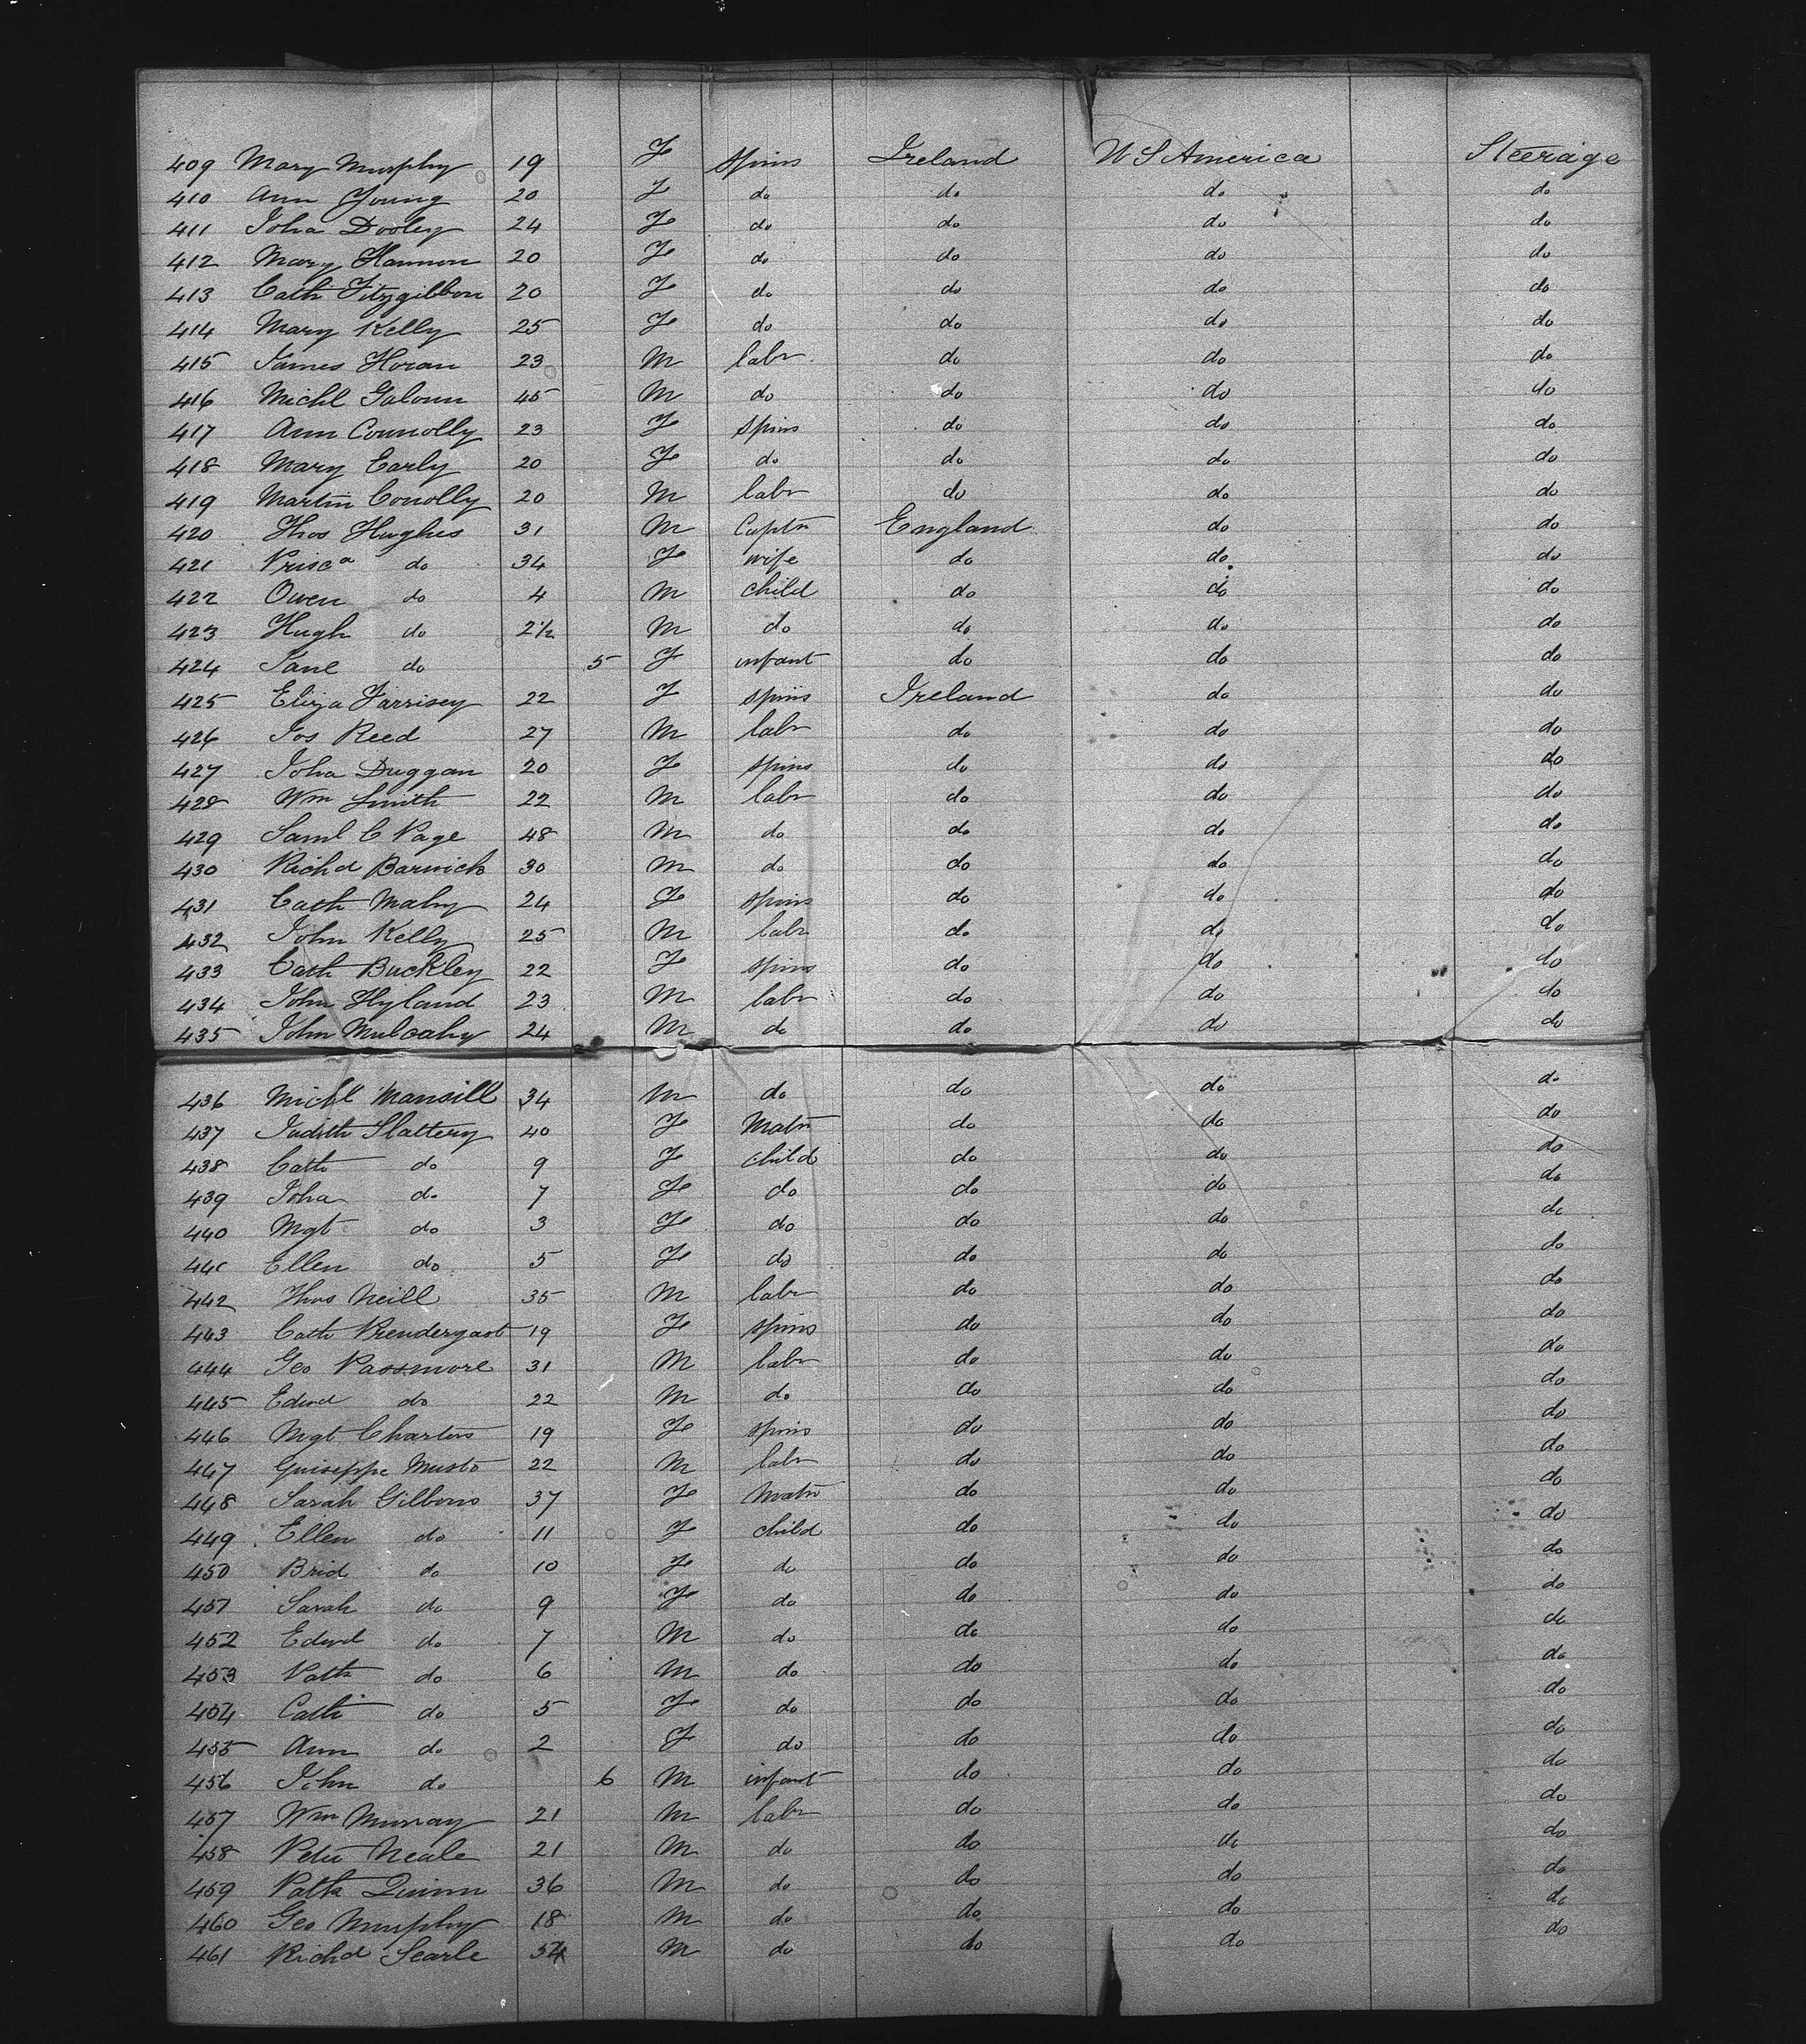 409 Mary Murphy 19 F spins Ireland U S America Steerage
410 Ann Young 20 F do do do do
411 Joha Dooley 24 F do do do do
412 Mary Hannon 20 F do do do do
413 Cath Fitzgibbon 20 F do do do do
414 Mary Kelly 25 F do do do do
415 James Horan 23 M labr do do do
416 Michl Galvun 45 M do do do do
417 Ann Connolly 23 F spins do do do
418 Mary Early 20 F do do do do
419 Martin Conolly 20 M labr do do do
420 Thos Hughes 31 M Captn England do do
421 Prisca do 34 F wife do do do
422 Owen do 4 M child do do do
423 Hugh do 2½ M do do do do
424 Jane do 5 F infant do do do
425 Eliza Farrisey 22 F spins Ireland do do
426 Jos Reed 27 M labr do do do
427 Joha Duggan 20 F spins do do do
428 Wm Smith 22 M labr do do do
429 Saml C Page 48 M do do do do
430 Richd Barwick 30 M do do do do
431 Cath Mahy 24 F spins do do do
432 John Kelly 25 M labr do do do
433 Cath Buckley 22 F spins do do do
434 John Hyland 23 M labr do do do
435 John Mulcahy 24 M do do do do
436 Michl Mansill 34 M do do do do
437 Judith Slattery 40 F Matn do do do
438 Cath do 9 F child do do do
439 Joha do 7 F do do do do
440 Mgt do 3 F do do do do
441 Ellen do 5 F do do do do
442 Thos Neill 35 M labr do do do
443 Cath Prendergast 19 F spins do do do
444 Geo Passmore 31 M labr do do do
445 Edwd do 22 M do do do do
446 Mgt Charters 19 F spins do do do
447 Guiseppe Musto 22 M labr do do do
448 Sarah Gilbons 37 F Matn do do do
449 Ellen do 11 F child do do do
450 Brid do 10 F do do do do
451 Sarah do 9 F do do do do
452 Edwd do 7 M do do do do
453 Patk do 6 M do do do do
454 Cath do 5 F do do do do
455 Ann do 2 F do do do do
456 John do 6 M infant do do do
457 Wm Murray 21 M labr do do do
458 Peter Neale 21 M do do do do
459 Patk Quinn 36 M do do do do
460 Geo Murphy 18 M do do do do
461 Richd Searle 54 M do do do do